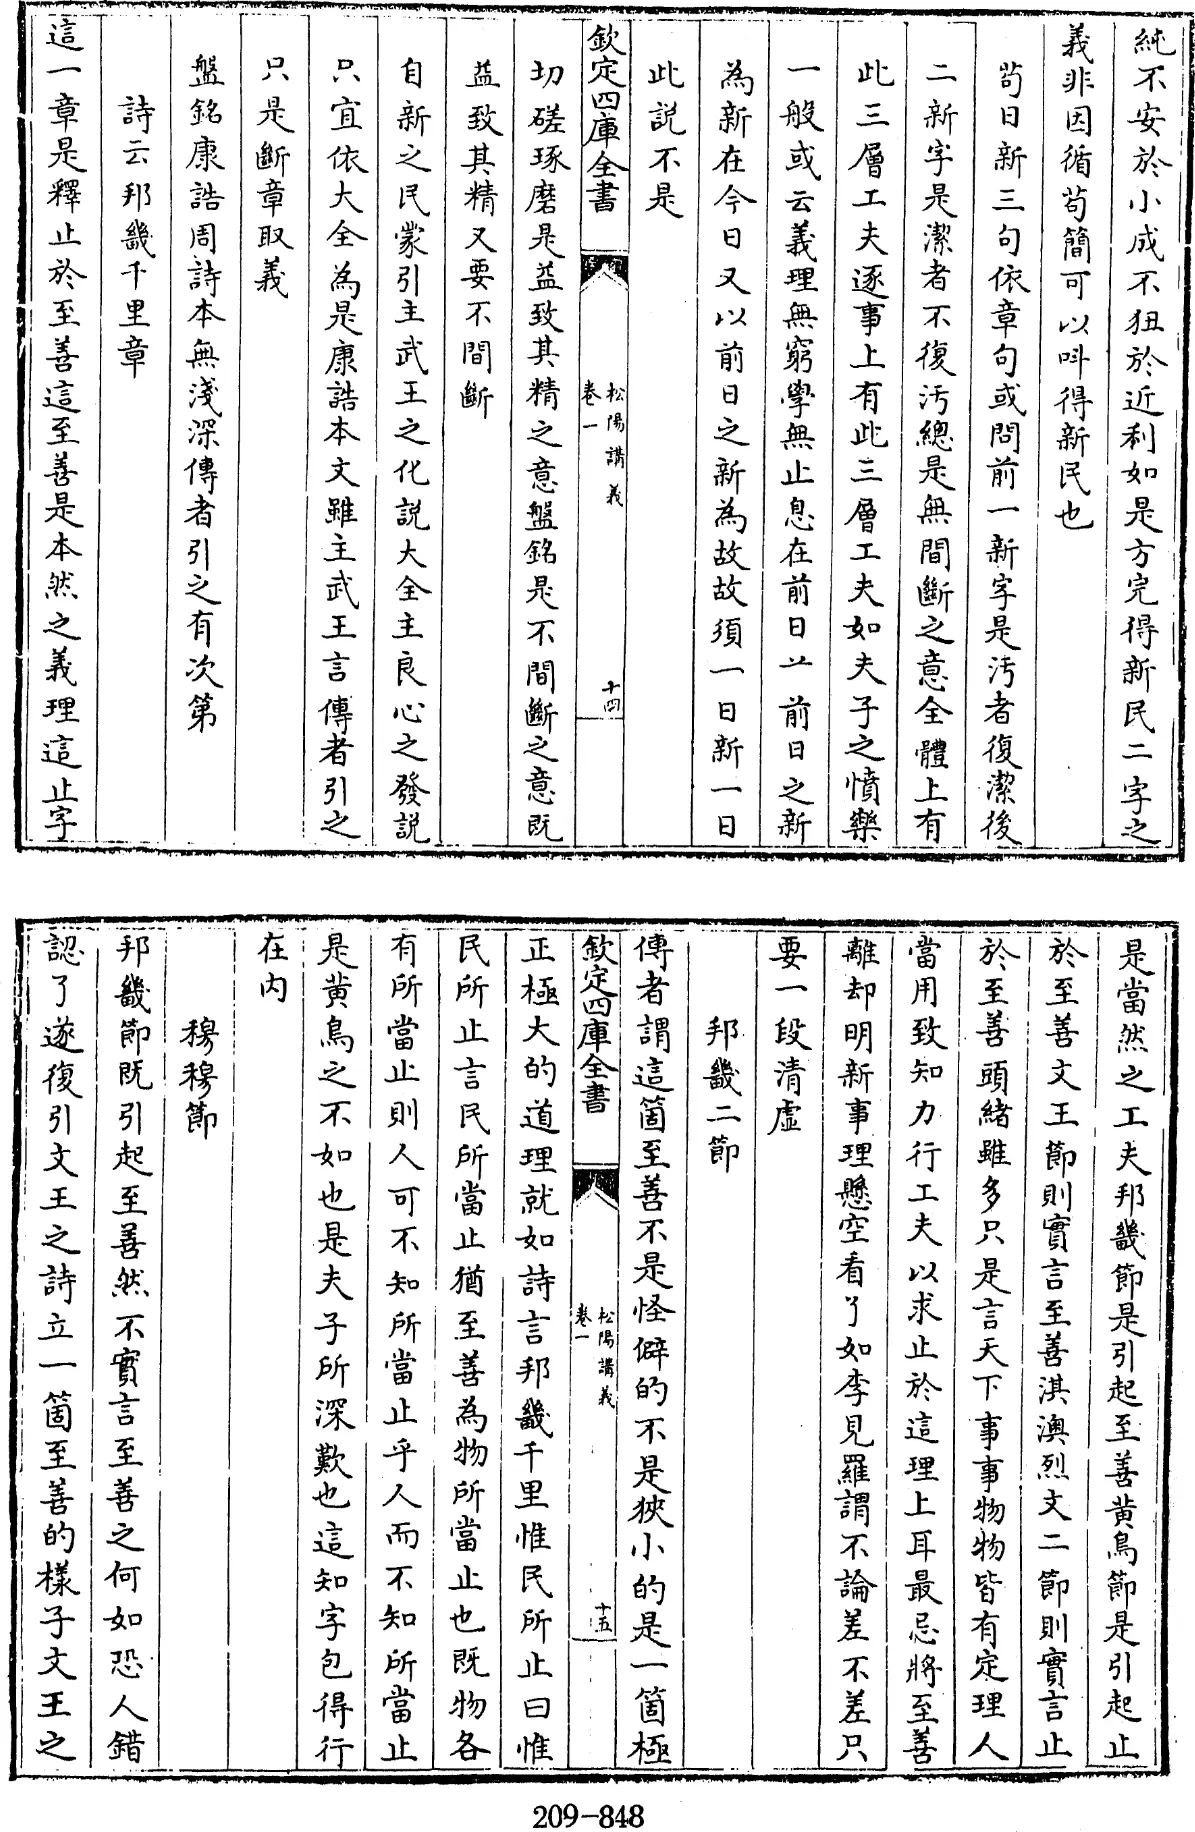 純不安於小成不狃於近利如是方完得新民二字之
義非因循苟簡可以呌得新民也
苟日新三句依章句或問前一新字是汚者復潔後
二新字是潔者不復汚總是無間斷之意全體上有
此三層工夫逐事上有此三層工夫如夫子之憤樂
一般或云義理無窮學無止息在前日前日之新
為新在今日又以前日之新為故故須一日新一日
此説不是
欽定四庫全書
松陽講義
卷一
十四
切磋琢磨是益致其精之意盤銘是不間斷之意既
益致其精又要不間斷
自新之民蒙引主武王之化説大全主良心之發説
只宜依大全為是康誥本文雖主武王言傳者引之
只是斷章取義
盤銘康誥周詩本無淺深傳者引之有次第
詩云邦畿千里章
這一章是釋止於至善這至善是本然之義理這止字
是當然之工夫邦畿節是引起至善黄鳥節是引起止
於至善文王節則實言至善淇澳烈文二節則實言止
於至善頭緒雖多只是言天下事事物物皆有定理人
當用致知力行工夫以求止於這理上耳最忌將至善
離却明新事理懸空看了如李見羅謂不論差不差只
要一段清虛
邦畿二節
傳者謂這箇至善不是怪僻的不是狹小的是一箇極
欽定四庫全書
松陽講義
卷一
十五
正極大的道理就如詩言邦畿千里惟民所止曰惟
民所止言民所當止猶至善為物所當止也既物各
有所當止則人可不知所當止乎人而不知所當止
是黄鳥之不如也是夫子所深歎也這知字包得行
在内
穆穆節
邦畿節既引起至善然不實言至善之何如恐人錯
認了遂復引文王之詩立一箇至善的樣子文王之
209-848